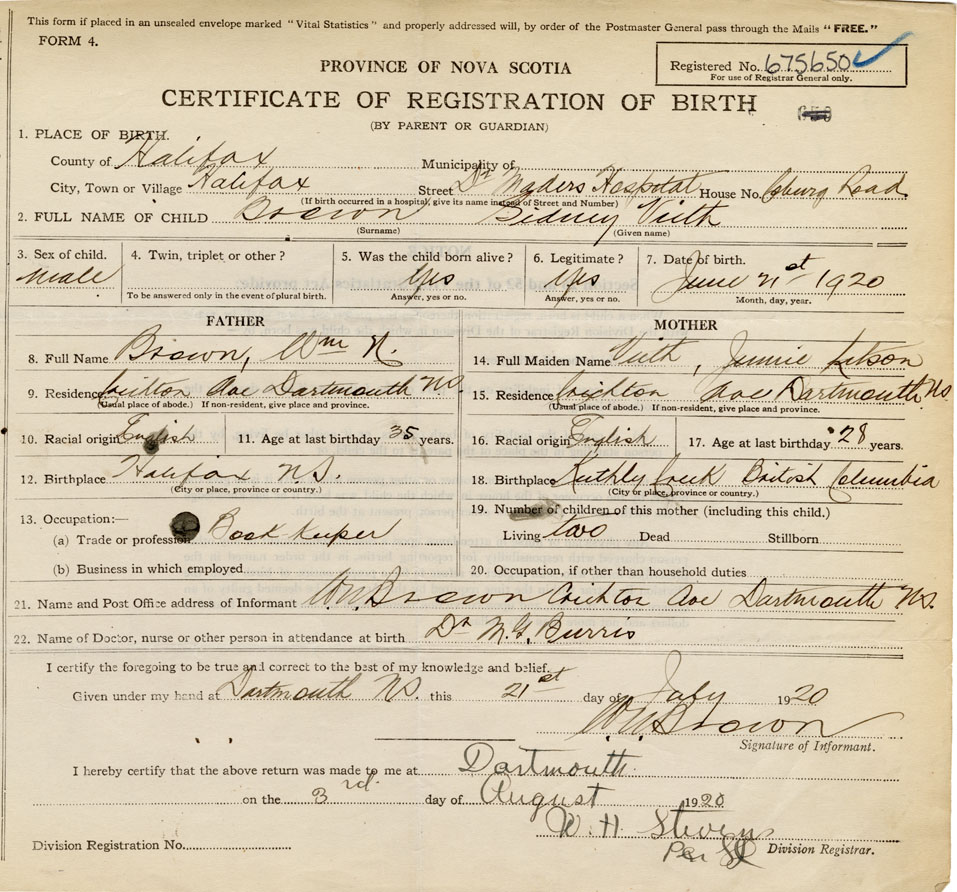 This form if placed in an unsealed envelope marked "Vital Statistics" and properly addressed will, by order of the Postmaster General pass through the Mails "FREE."
FORM 4.
Registered No. 675650
For use of Registrar General only.
PROVINCE OF NOVA SCOTIA
CERTIFICATE OF REGISTRATION OF BIRTH
(BY PARENT OR GUARDIAN)
1. PLACE OF BIRTH.
County of Halifax Municipality of
City, Town or Village Halifax Street Dr Maders Hospital House No. Coburg Road
(If birth occurred in a hospital, give its name instead of Street and Number)
2. FULL NAME OF CHILD Brown Sidney Vieth
(Surname) (Given name)
3. Sex of child. 4. Twin, triplet or other? 5. Was the child born alive? 6. Legitimate? 7. Date of birth.
Male Yes Yes June 21st 1920
To be answered only in the event of plural birth. Answer, yes or no. Answer, yes or no. Month, day, year.
FATHER MOTHER
8. Full Name Brown, Wm N. 14. Full Maiden Name Vieth, Jennie
9. Residence Crichton Ave Dartmouth NS 15. Residence Crichton Ave Dartmouth NS.
(Usual place of abode.) If non-resident, give place and province. (Usual place of abode.) If non-resident, give place and province.
10. Racial origin English 11. Age at last birthday 35 years. 16. Racial origin English 17. Age at last birthday 28 years.
12. Birthplace Halifax N.S. 18. Birthplace British Columbia
(City or place, province or country.) (City or place, province or country.)
13. Occupation:— 19. Number of children of this mother (including this child.)
(a) Trade or profession Book-keeper Living two Dead Stillborn
(b) Business in which employed 20. Occupation, if other than household duties
21. Name and Post Office address of Informant W.N. Brown Crichton Ave Dartmouth N.S.
22. Name of Doctor, nurse or other person in attendance at birth Dr M.G. Burris
I certify the foregoing to be true and correct to the best of my knowledge and belief.
Given under my hand at Dartmouth NS. this 21st day of July 1920
W.N. Brown
Signature of Informant.
I hereby certify that the above return was made to me at Dartmouth
on the 3rd day of August 1920
W. H. Stevens
Per
Division Registration No. Division Registrar.